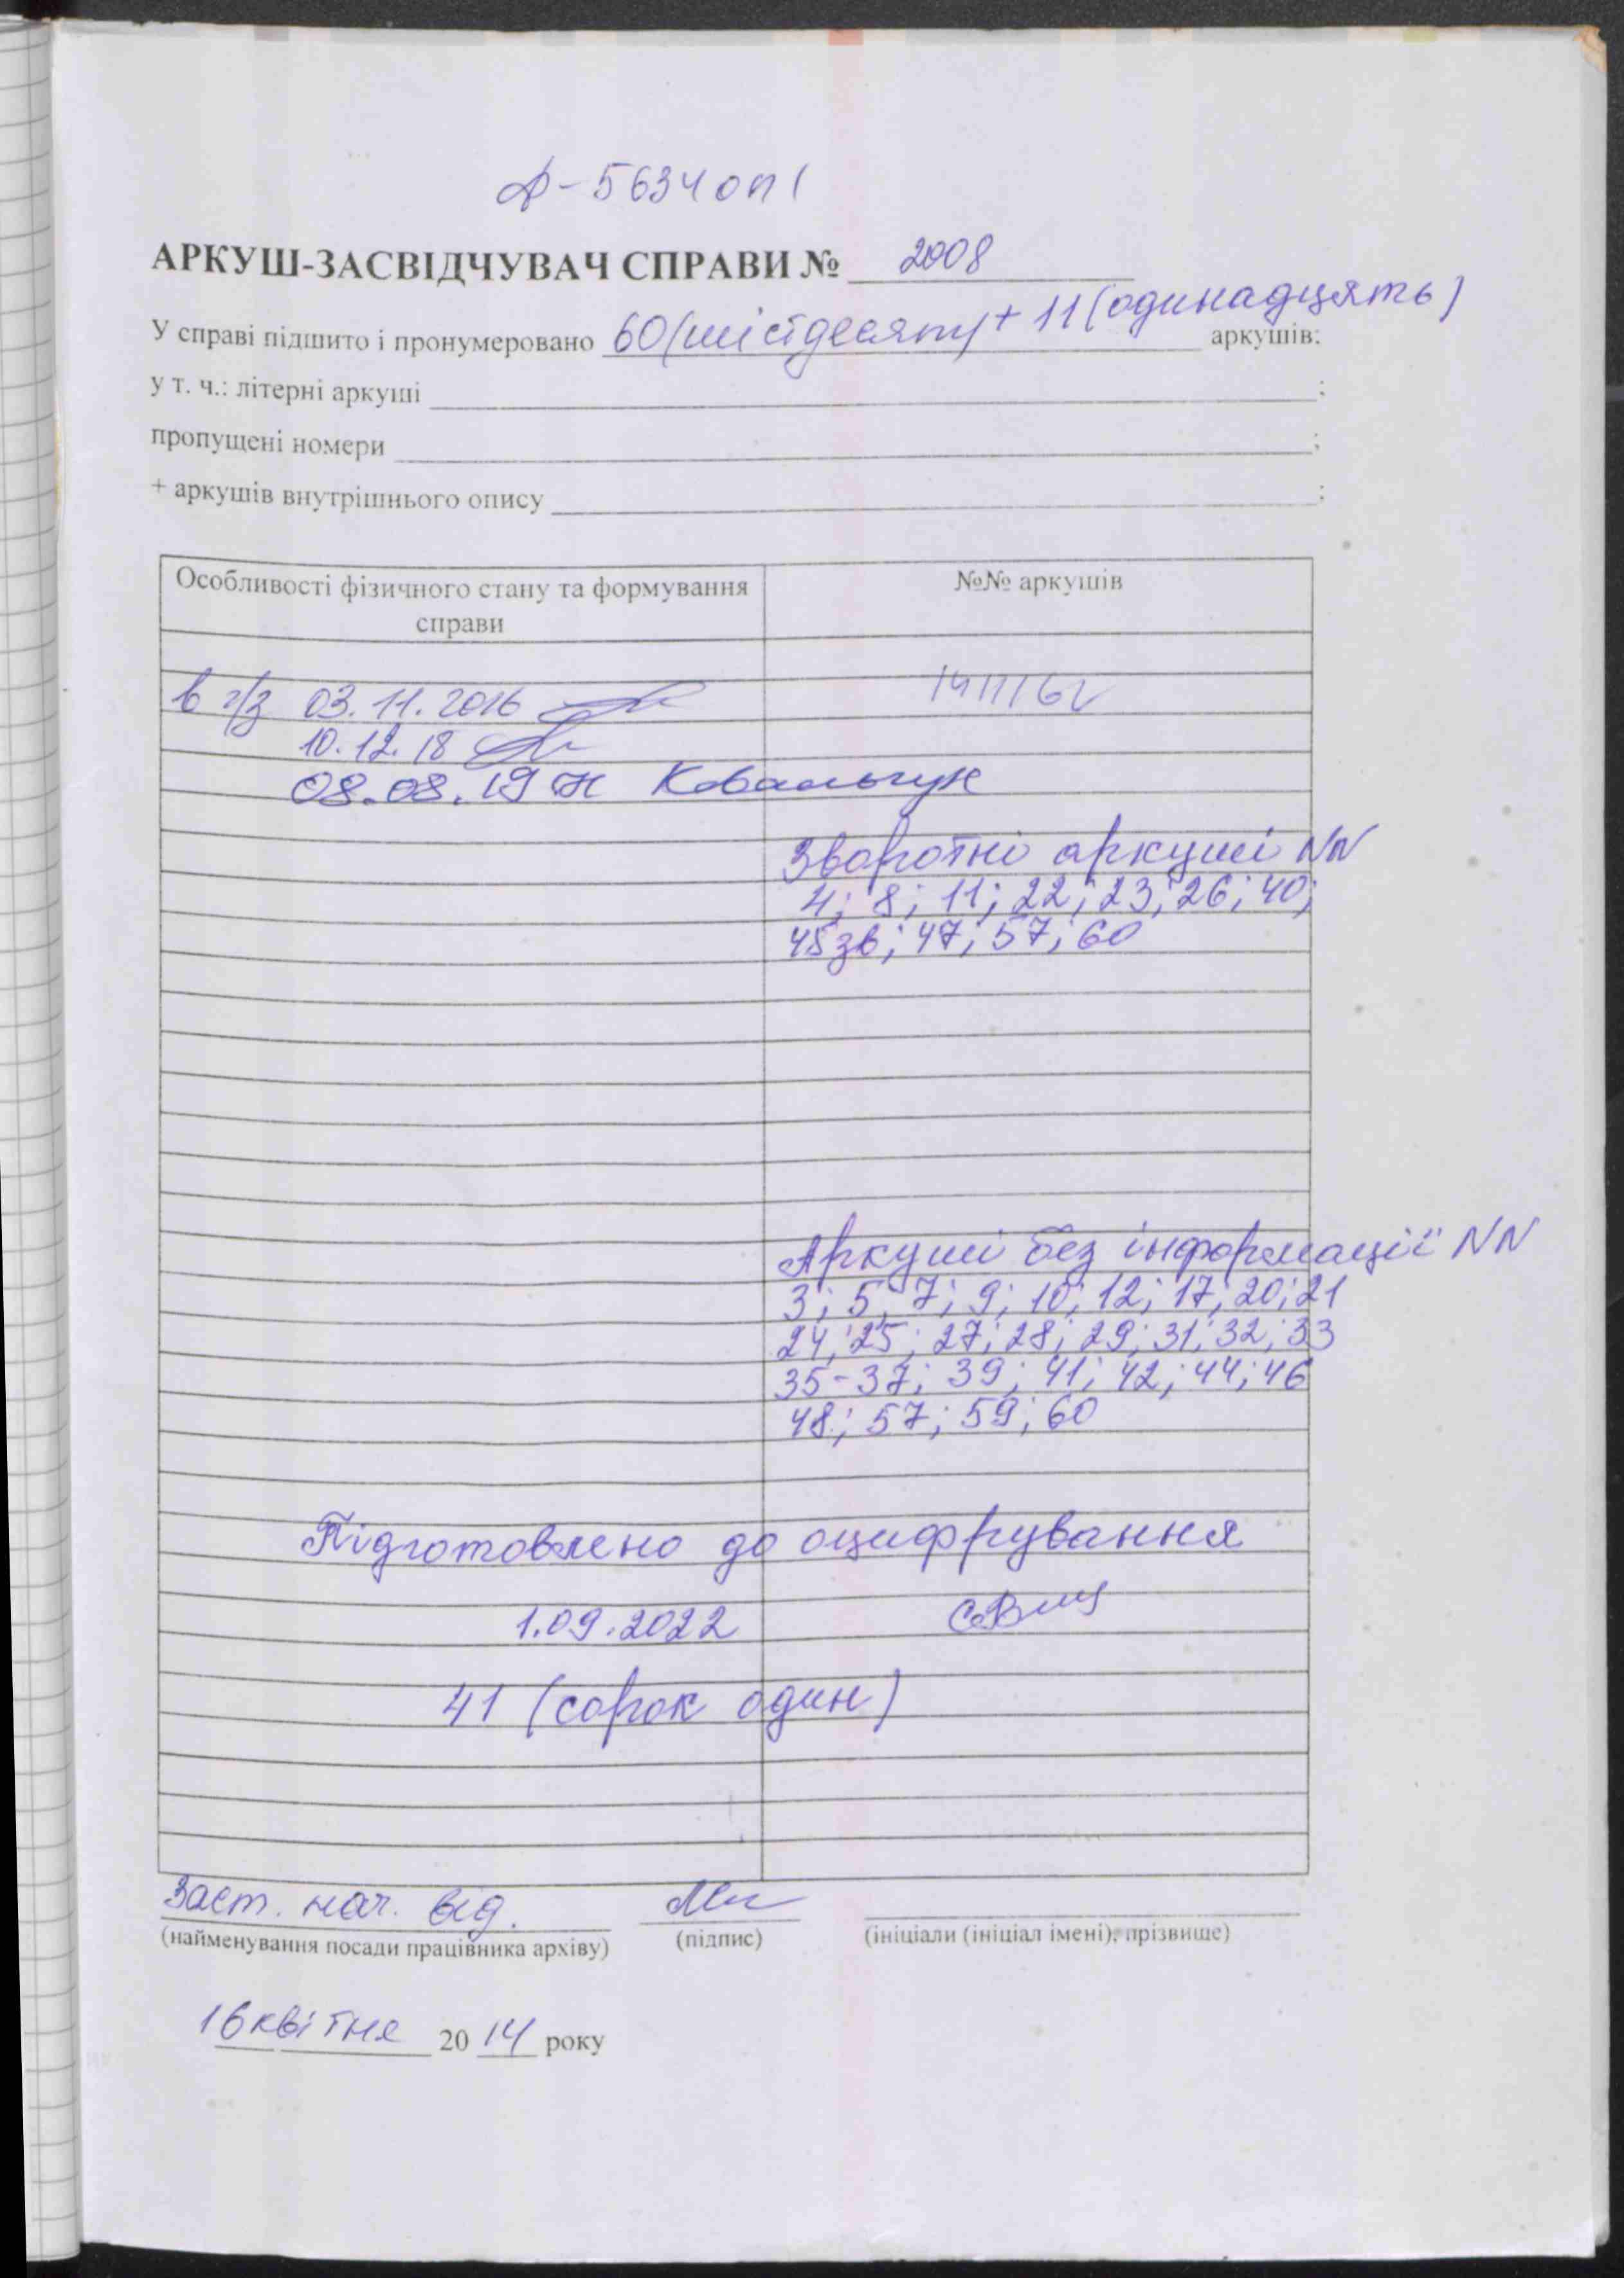 Ф-5634 оп 1
АРКУШ-ЗАСВІДЧУВАЧ СПРАВИ № 2008
У справі підшито і пронумеровано 60 (шістдесят) + 11 (одинадцять) аркушів:
у т. ч.: літерні аркуші ;
пропущені номери ;
+ аркушів внутрішнього опису ;
Особливості фізичного стану та формування справи
№№ аркушів
в г/з 03.11.2016
10.12.18
08.08.19 Ковальчук
Зворотні аркуші NN
4; 8; 11; 22; 23; 26; 40;
45зв; 47; 57; 60
Аркуші без інформації NN
3; 5; 7; 9; 10; 12; 17; 20; 21
24; 25; 27; 28; 29; 31; 32; 33
35-37; 39; 41; 42; 44; 46
48; 57; 59; 60
Підготовлено до оцифрування
1.09.2022
41 (сорок один)
Заст. нач. від.
(найменування посади працівника архіву) (підпис) (ініціали (ініціал імені), прізвище)
16 квітня 2014 року